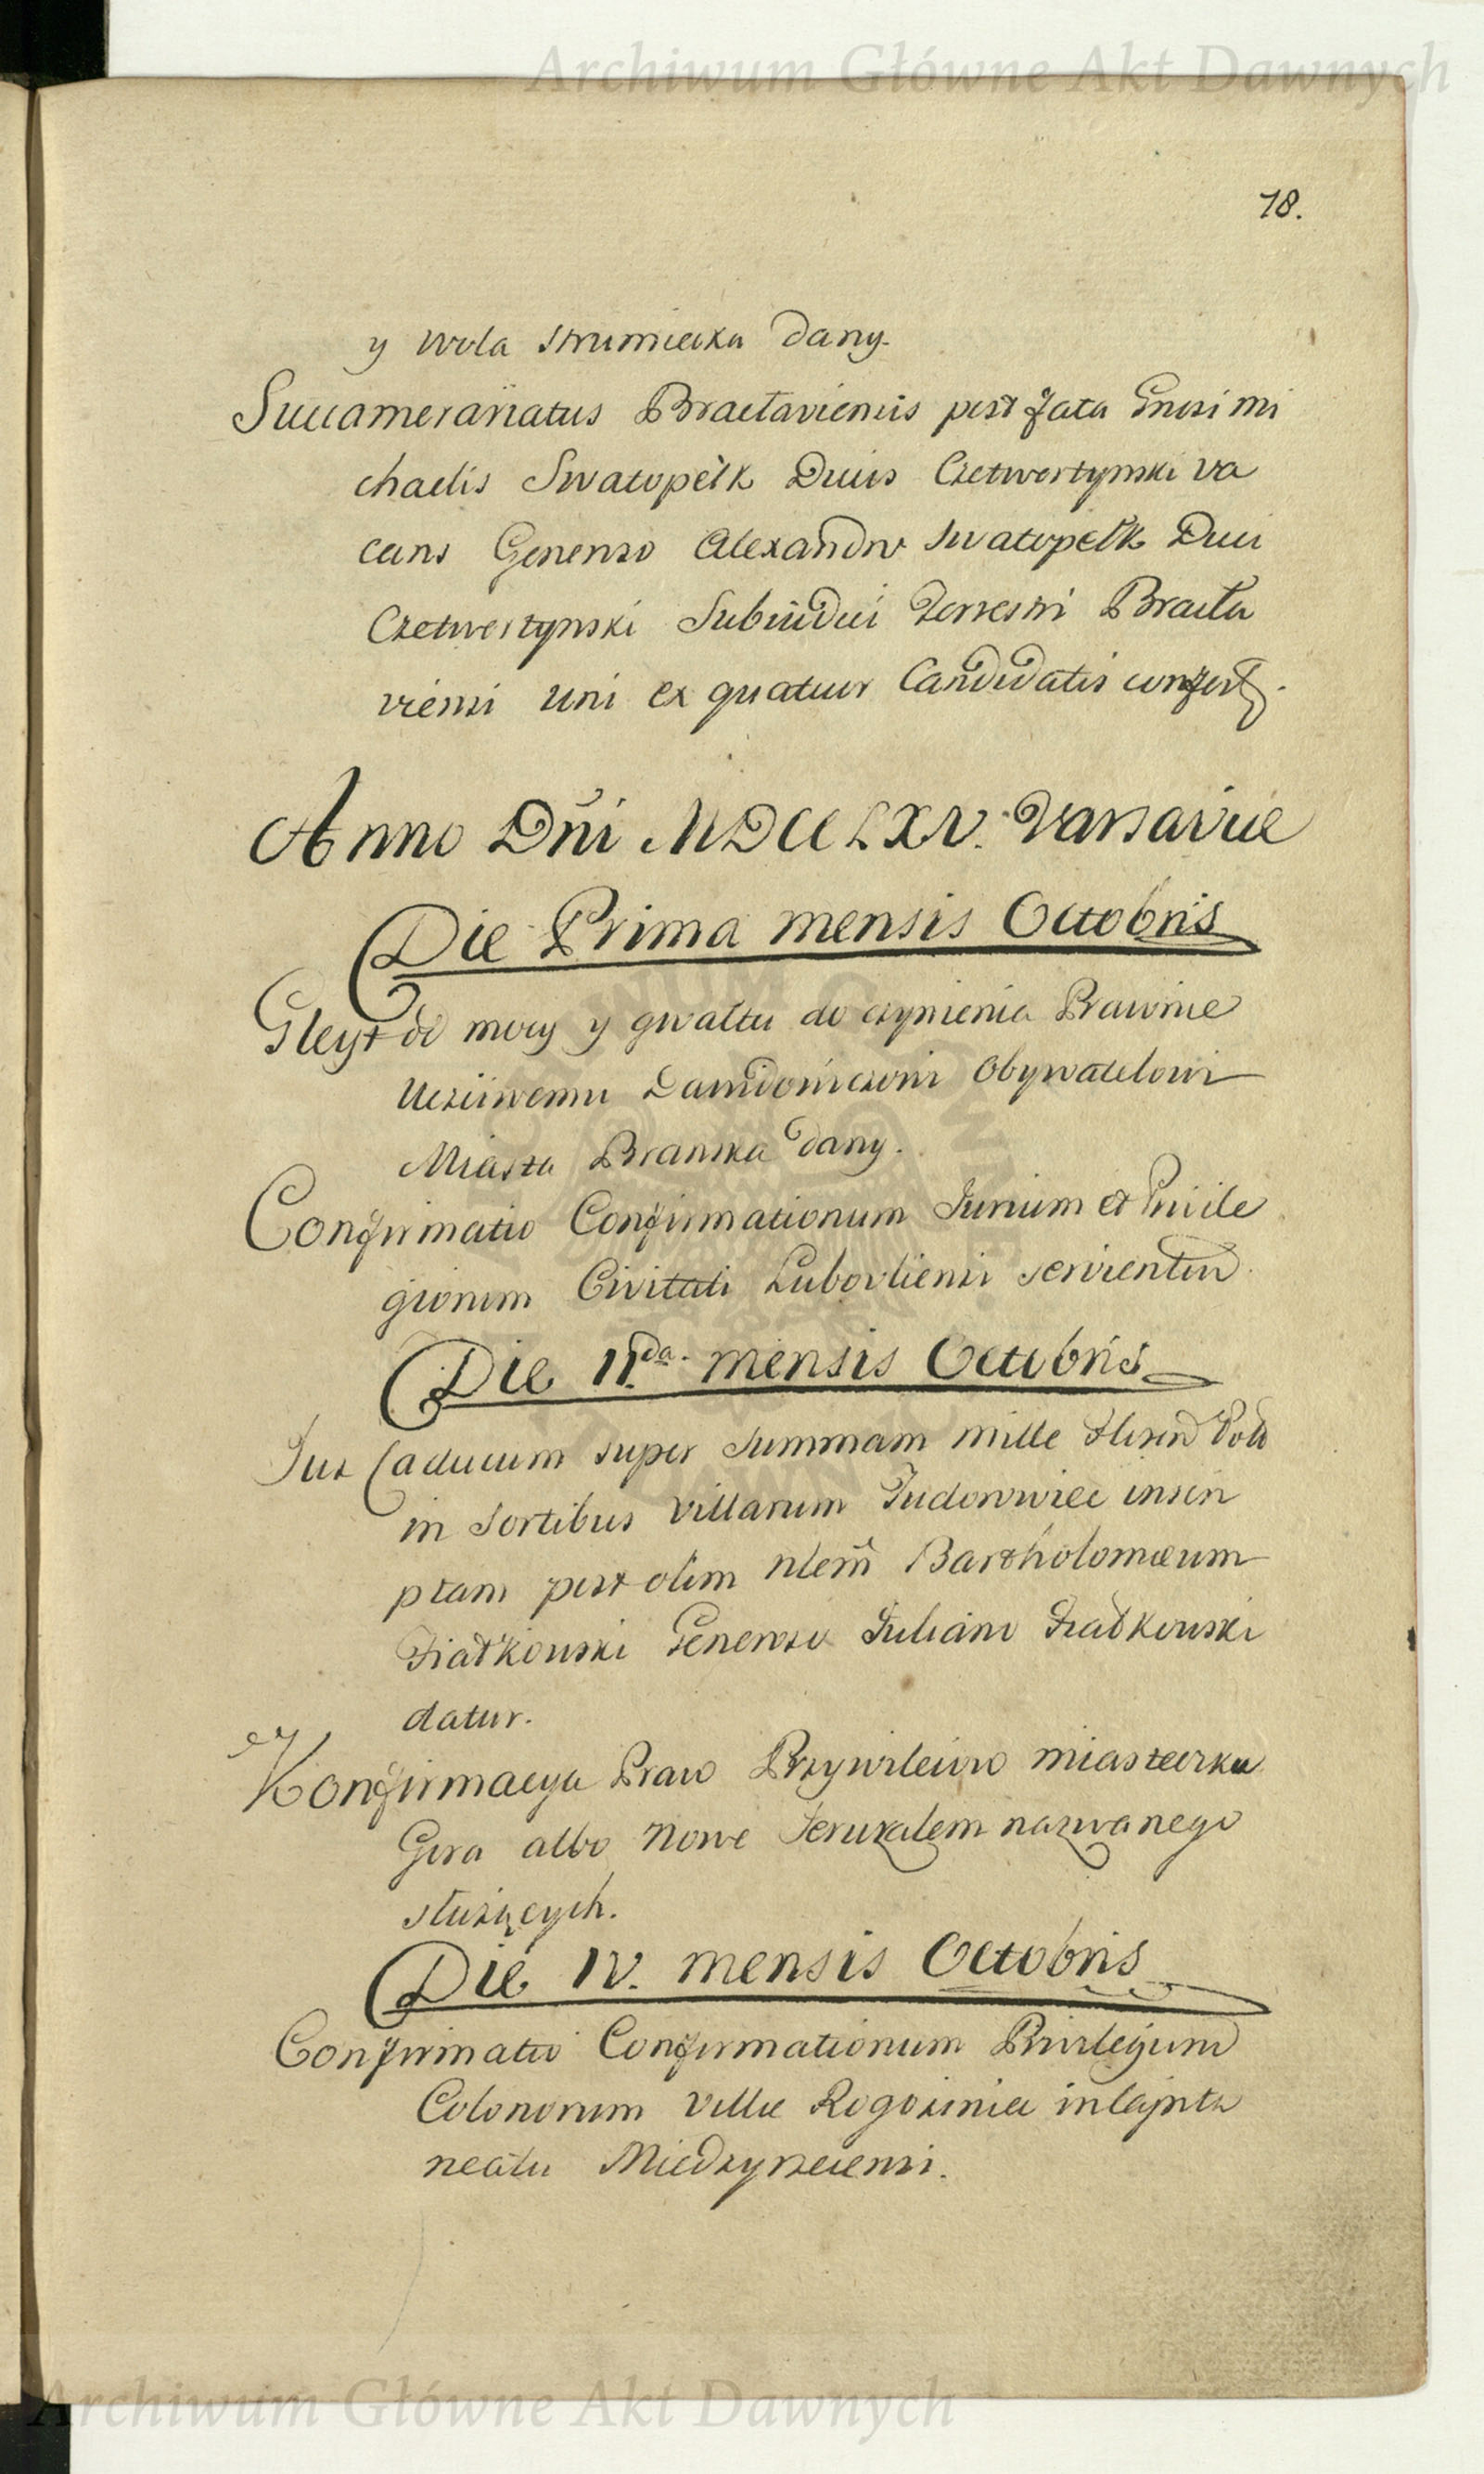 Archiwum Główne Akt Dawnych
18.
y Wola Strumiecka dany.
Succamerariatus Bracłaviensis post fata Gnosi Mi
chaelis Swatopełk Ducis Czetwertynski va
cans Generoso Alexandro Swatopełk Duci
Czetwertynski Subiudici Terrestri Bracła
viensi uni ex quatuor Candidatis confert.
Anno Dni MDCCLXV. Varsaviæ
Die Prima mensis Octobris
Gleyt od mocy y gwałtu do czynienia Prawnie
Uczciwemu Dawidowiczowi Obywatelowi
Miasta Branska dany.
Confirmatio Confirmationum Iurium et Privile
giorum Civitati Lubovliensi servientiu
Die II.da mensis Octobris
Ius Caducum super Summam mille Floren Polo
in Sortibus Villarum inscri
ptam post olim Nlem Bartholomæum
Fiałkowski Generoso Iuliano Fiałkowski
datur.
Konfirmacya Praw Przywileiow miasteczku
Gora albo Nowe Ieruzalem nazwanego
służących.
Die IV. mensis Octobris
Confirmatio Confirmationum Privilegium
Colonorum Villæ Rogoziniec in Capita
neatu Miedzyrzecensi.
Archiwum Główne Akt Dawnych